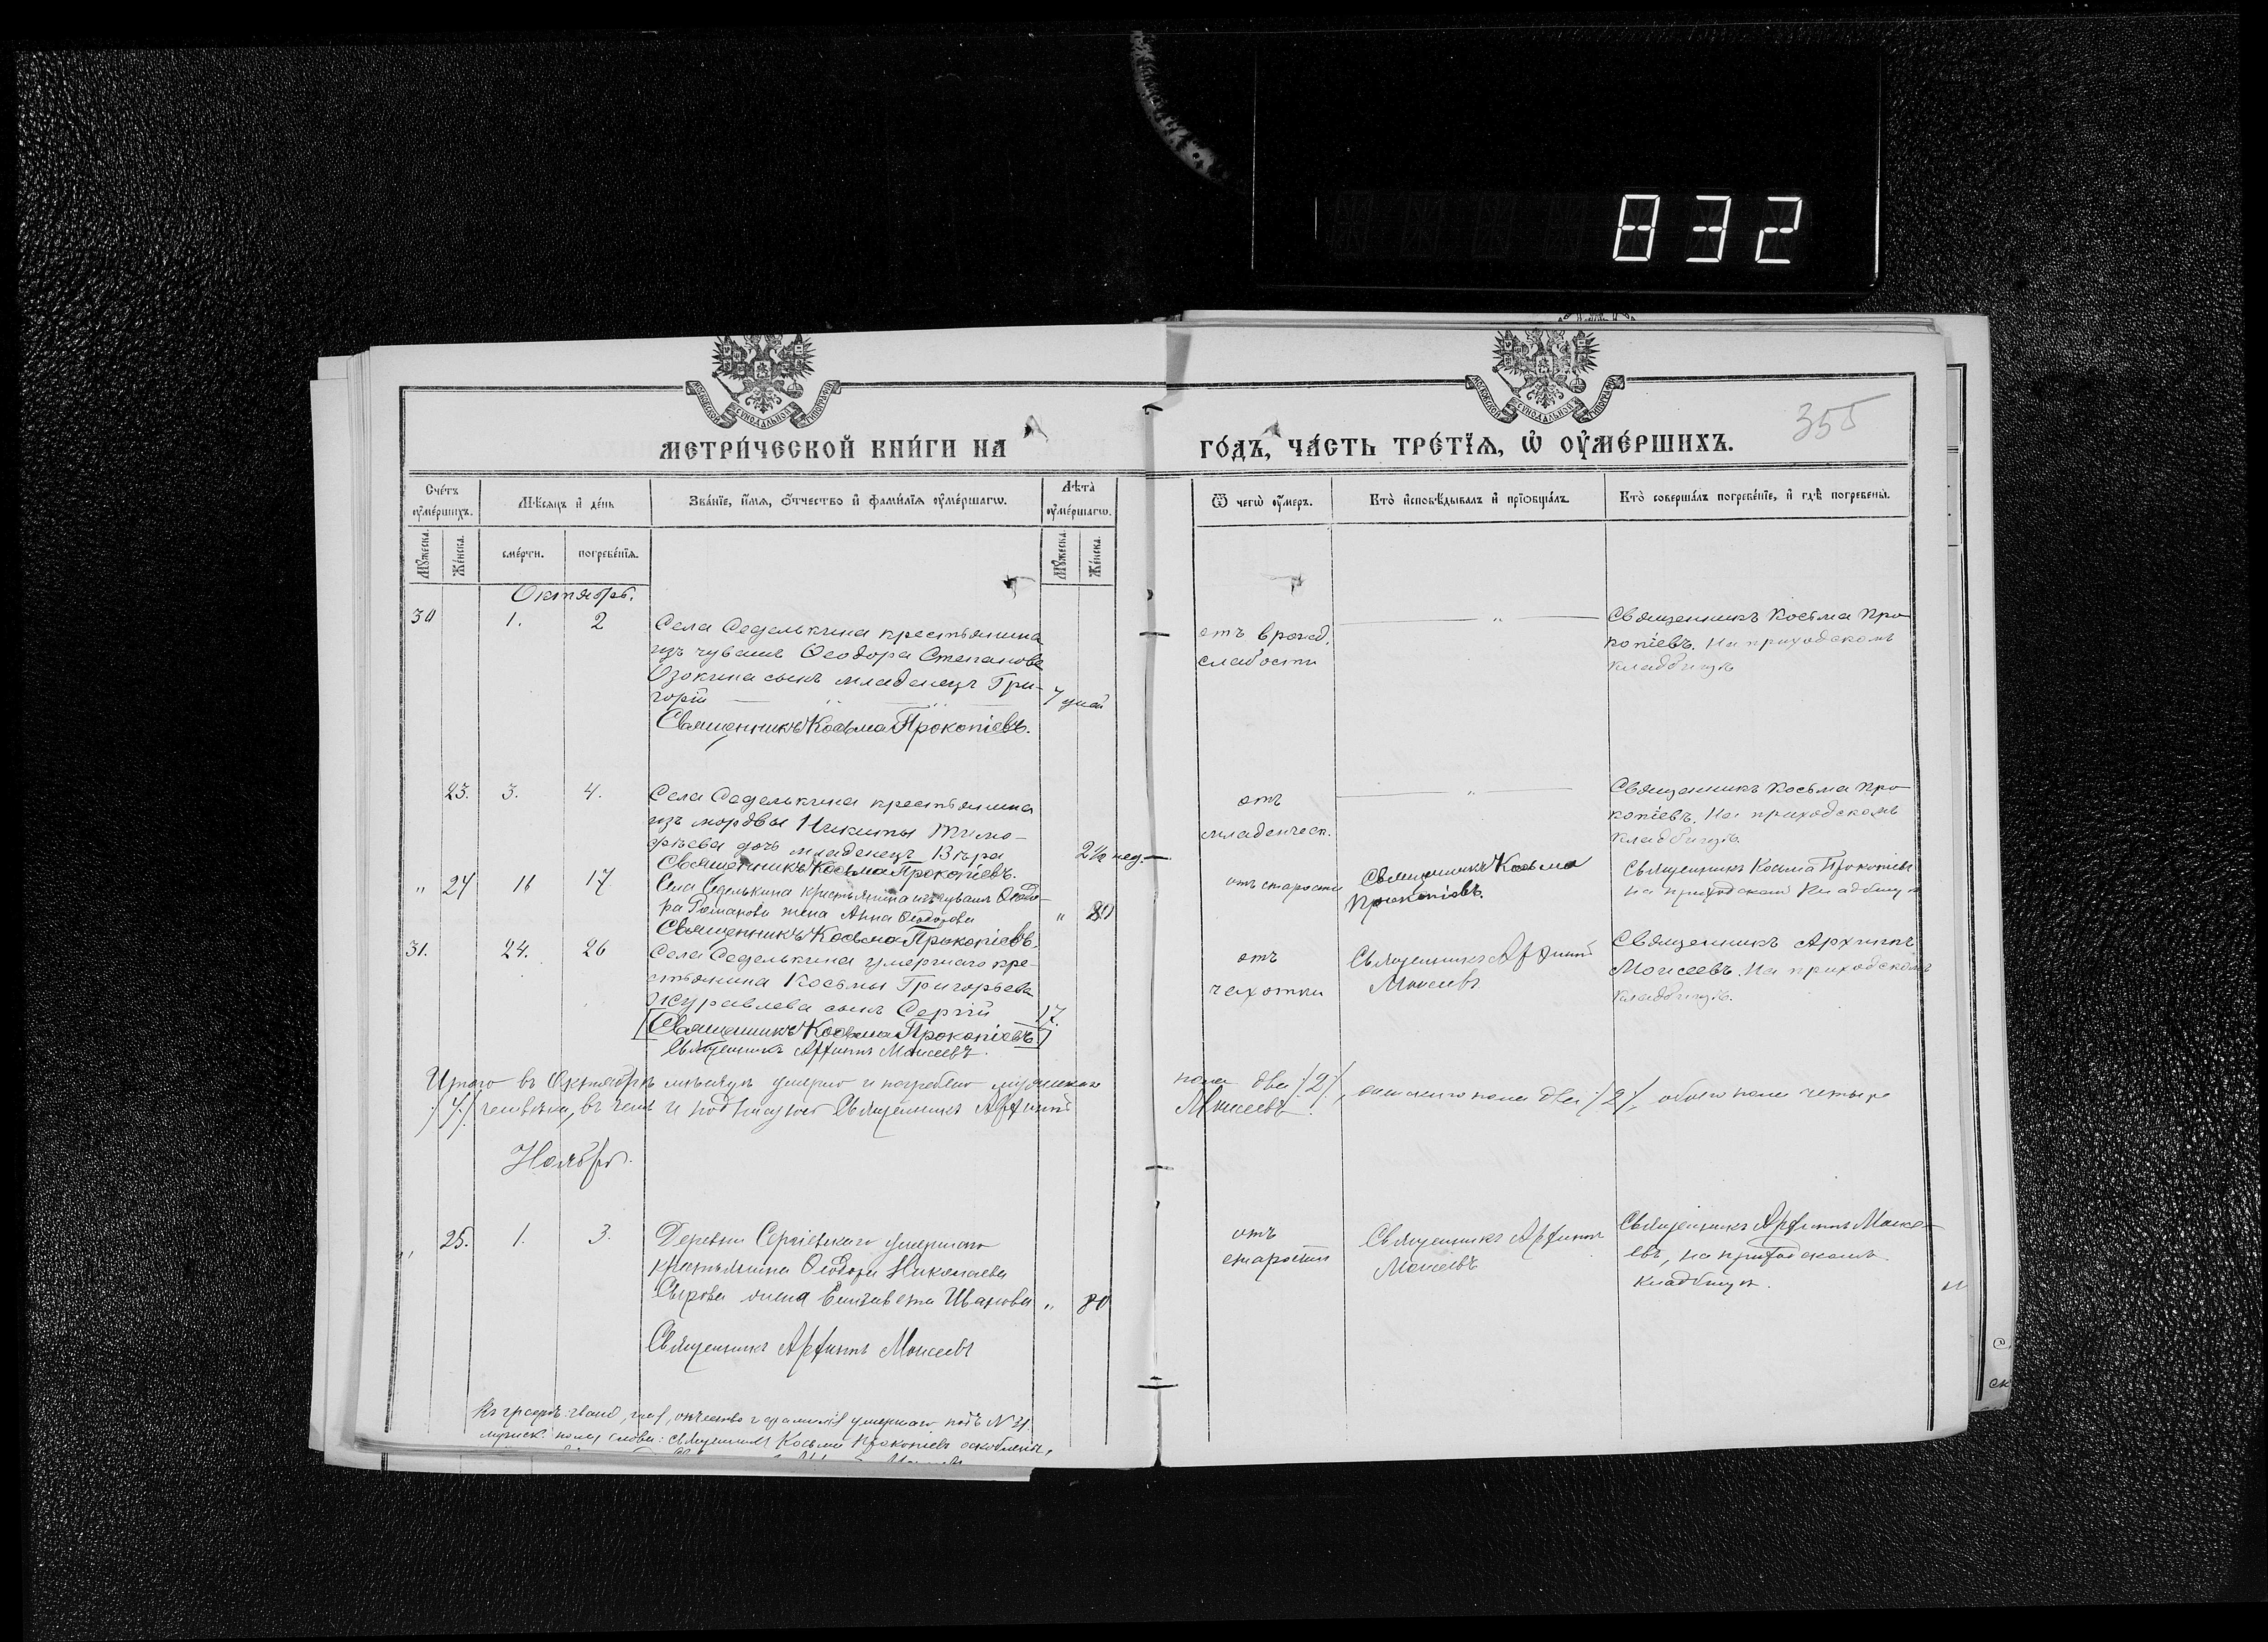 832
МОСКОВСКОЙ СѴНОДАЛЬНОЙ ТИПОГРАФІИ
МОСКОВСКОЙ СѴНОДАЛЬНОЙ ТИПОГРАФІИ
355
МЕТРИ́ЧЕСКОЙ КНИ́ГИ НА ГО́ДЪ, ЧА́СТЬ ТРЕ́ТІѦ, Ѡ ОУ҆МЕ́РШИХЪ.
Сче́тъ оу҆ме́ршихъ.
Мѣ́сяцъ и҆ де́нь
Зва́нїе, и҆́мѧ, ѻ҆́тчество и҆ фами́лїѧ оу҆ме́ршагѡ.
Лѣта̀ оу҆ме́ршагѡ.
Ѿ чегѡ̀ оу҆́меръ.
Кто̀ и҆сповѣ́дывалъ и҆ прїѻбща́лъ.
Кто̀ соверша́лъ погребе́нїе, и҆ гдѣ̀ погребены̀.
Мꙋ́жеска.
Же́нска.
сме́рти.
погребе́нїѧ.
Мꙋ́жеска.
Же́нска.
Октябрь.
30 1. 2
Села Седелькина крестьянина
изъ чувашъ Ѳеодора Степанова
Озокина сынъ младенецъ Гри-
горій 7 дней
Священникъ Косьма Прокопіевъ.
отъ врожд.
слабости
Священникъ Косьма Про
копіевъ. На приходскомъ
кладбищѣ
23. 3. 4.
Села Седелькина крестьянина
изъ мордвы Никиты Тимо-
фѣева дочь младенецъ Вѣра 2½ нед.
Священникъ Косьма Прокопіевъ.
отъ
младенческ.
Священникъ Косьма Про
копіевъ. На приходскомъ
кладбищѣ.
" 24 16 17
Села Седелькина крестьянина изъ чувашъ Ѳеодо-
ра Романова жена Анна Ѳеодорова " 80
Священникъ Косьма Прокопіевъ.
отъ старости
Священникъ Косьма
Прокопіевъ.
Священникъ Косьма Прокопіевъ
на приходскомъ кладбищѣ
31. 24. 26
Села Седелькина умершаго кре-
стьянина Косьмы Григорьева
Журавлева сынъ Сергій 17.
[Священникъ Косьма Прокопіевъ]
Священникъ Архиппъ Моисеевъ.
отъ
чахотки
Священникъ Архиппъ
Моисеевъ
Священникъ Архиппъ
Моисеевъ. На приходскомъ
кладбищѣ.
Итого въ Октябрѣ мѣсяцѣ умерло и погребено мужскаго пола два /2/, женскаго пола два /2/, обоего пола четыре
/4/ человѣка, въ чемъ и подписуюсь Священникъ Архиппъ Моисеевъ.
Ноябрь.
" 25. 1. 3.
Деревни Сергіевскаго умершаго
крестьянина Ѳеодора Николаева
Сырова жена Елизавета Иванова " 80
Священникъ Архиппъ Моисеевъ
отъ
старости
Священникъ Архиппъ
Моисеевъ
Священникъ Архиппъ Моисе-
евъ, на приходскомъ
кладбищѣ.
Въ графѣ: званіе, имя, отчество и фамилія умершаго подъ № 31
мужск. пола слова: Священникъ Косьма Прокопіевъ оскоблены,